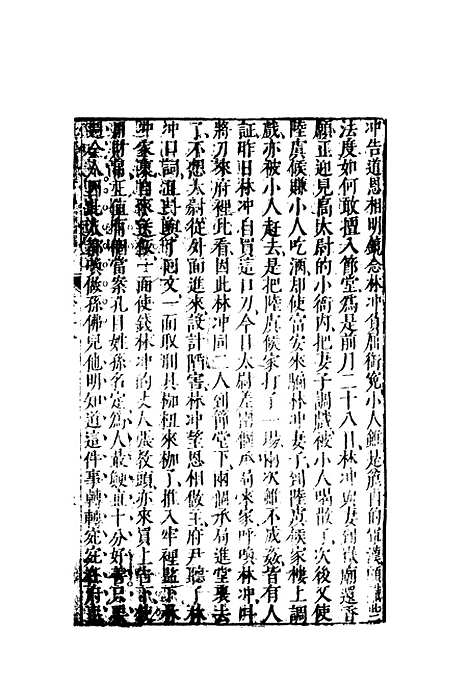 冲告道恩相明鏡念林冲負屈銜冤小人雖是麄鹵的軍漢頗識些
法度如何敢擅入節堂爲是前月二十八日林冲與妻到嶽廟還香
願正迎見高太尉的小衙內把妻子調戲被小人喝散了次後又使
陸虞候賺小人吃酒却使富安來騙林冲妻子到陸虞候家樓上調
戲亦被小人赶去是把陸虞候家打了一塲兩次雖不成姦皆有人
証昨日林冲自買這口刀今日太尉差兩個承局來家呼喚林冲叫
將刀來府裡比看因此林冲同二人到節堂下兩個承局進堂裏去
了不想太尉從外面進來設計陷害林冲望恩相做主府尹聽了林
冲口詞且呌與了囘文一面取刑具枷杻來枷了推入牢裡監下林
冲家裏自來送飯一面使錢林冲的丈人張教頭亦來買上告下使
用財帛正值有個當案孔目姓孫名定爲人最鯁直十分好善只要
週全人因此人都喚做孫佛兒他明知道這件事轉轉宛宛在府上